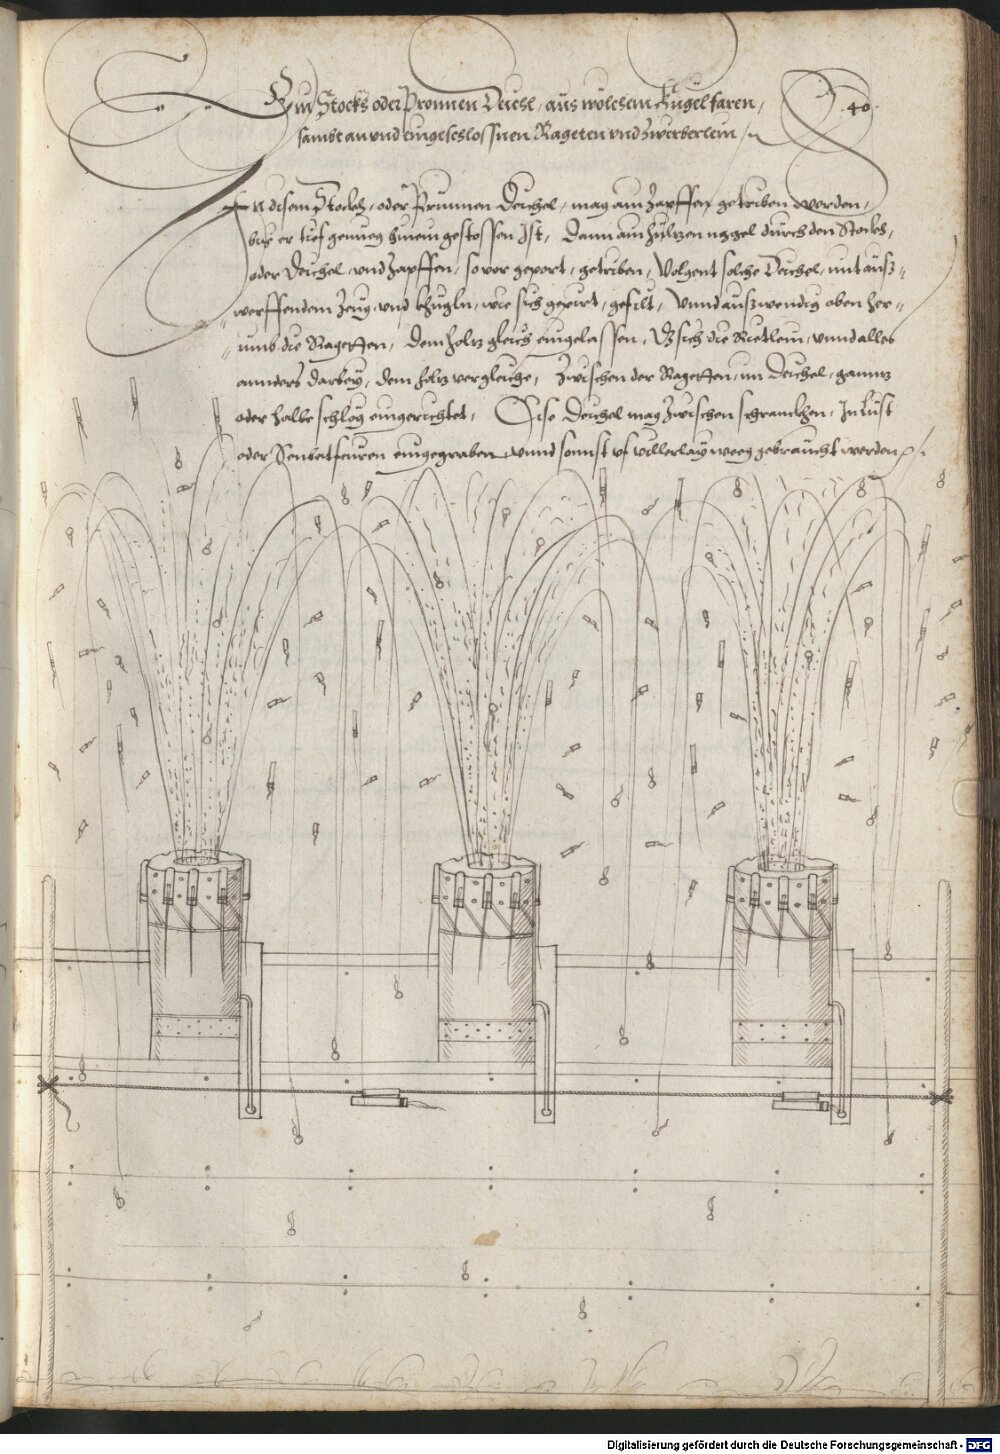 Ein Stockh oder Pronnen Deichl, aus wölchem Kugel faren,
sambt an und eingeschlossnen Rageten und Zwirberlein
.40.
In disem Stockh, oder Prunnen Deichel, mag ain Zapffen getriben werden,
bis er tief genueg hinein gestossen ist, Dann ain hültzen nagel durch den Stockh,
oder Deichel, und Zapffen, so vor geport, getriben, Volgent solche Deichel, mit aus-
werffendem Zeug, und khugln, wie sich gepürt, gefilt, Unnd auswendig oben her-
umb die Rageten, dem holtz gleich eingelassen, sich die Rietlein, unnd alles
annders darbey, dem holtz vergleiche, Zwischen der Rageten, im Deichel, ganntz
oder halbe schleg eingerichtet, Dise Deichel mag zwischen schranckhen, In Lust
oder Seubatfeuren eingegraben, unnd sonnst uf villerlay weeg gebraucht werden
Digitalisierung gefördert durch die Deutsche Forschungsgemeinschaft - DFG